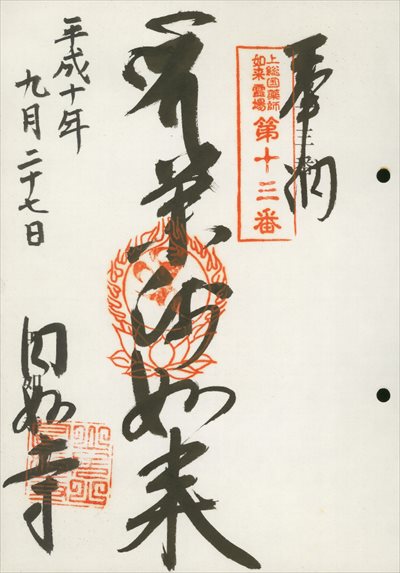 奉納
上総国薬師
如来霊場
第十三番
薬師如来
平成十年
九月二十七日
円如寺